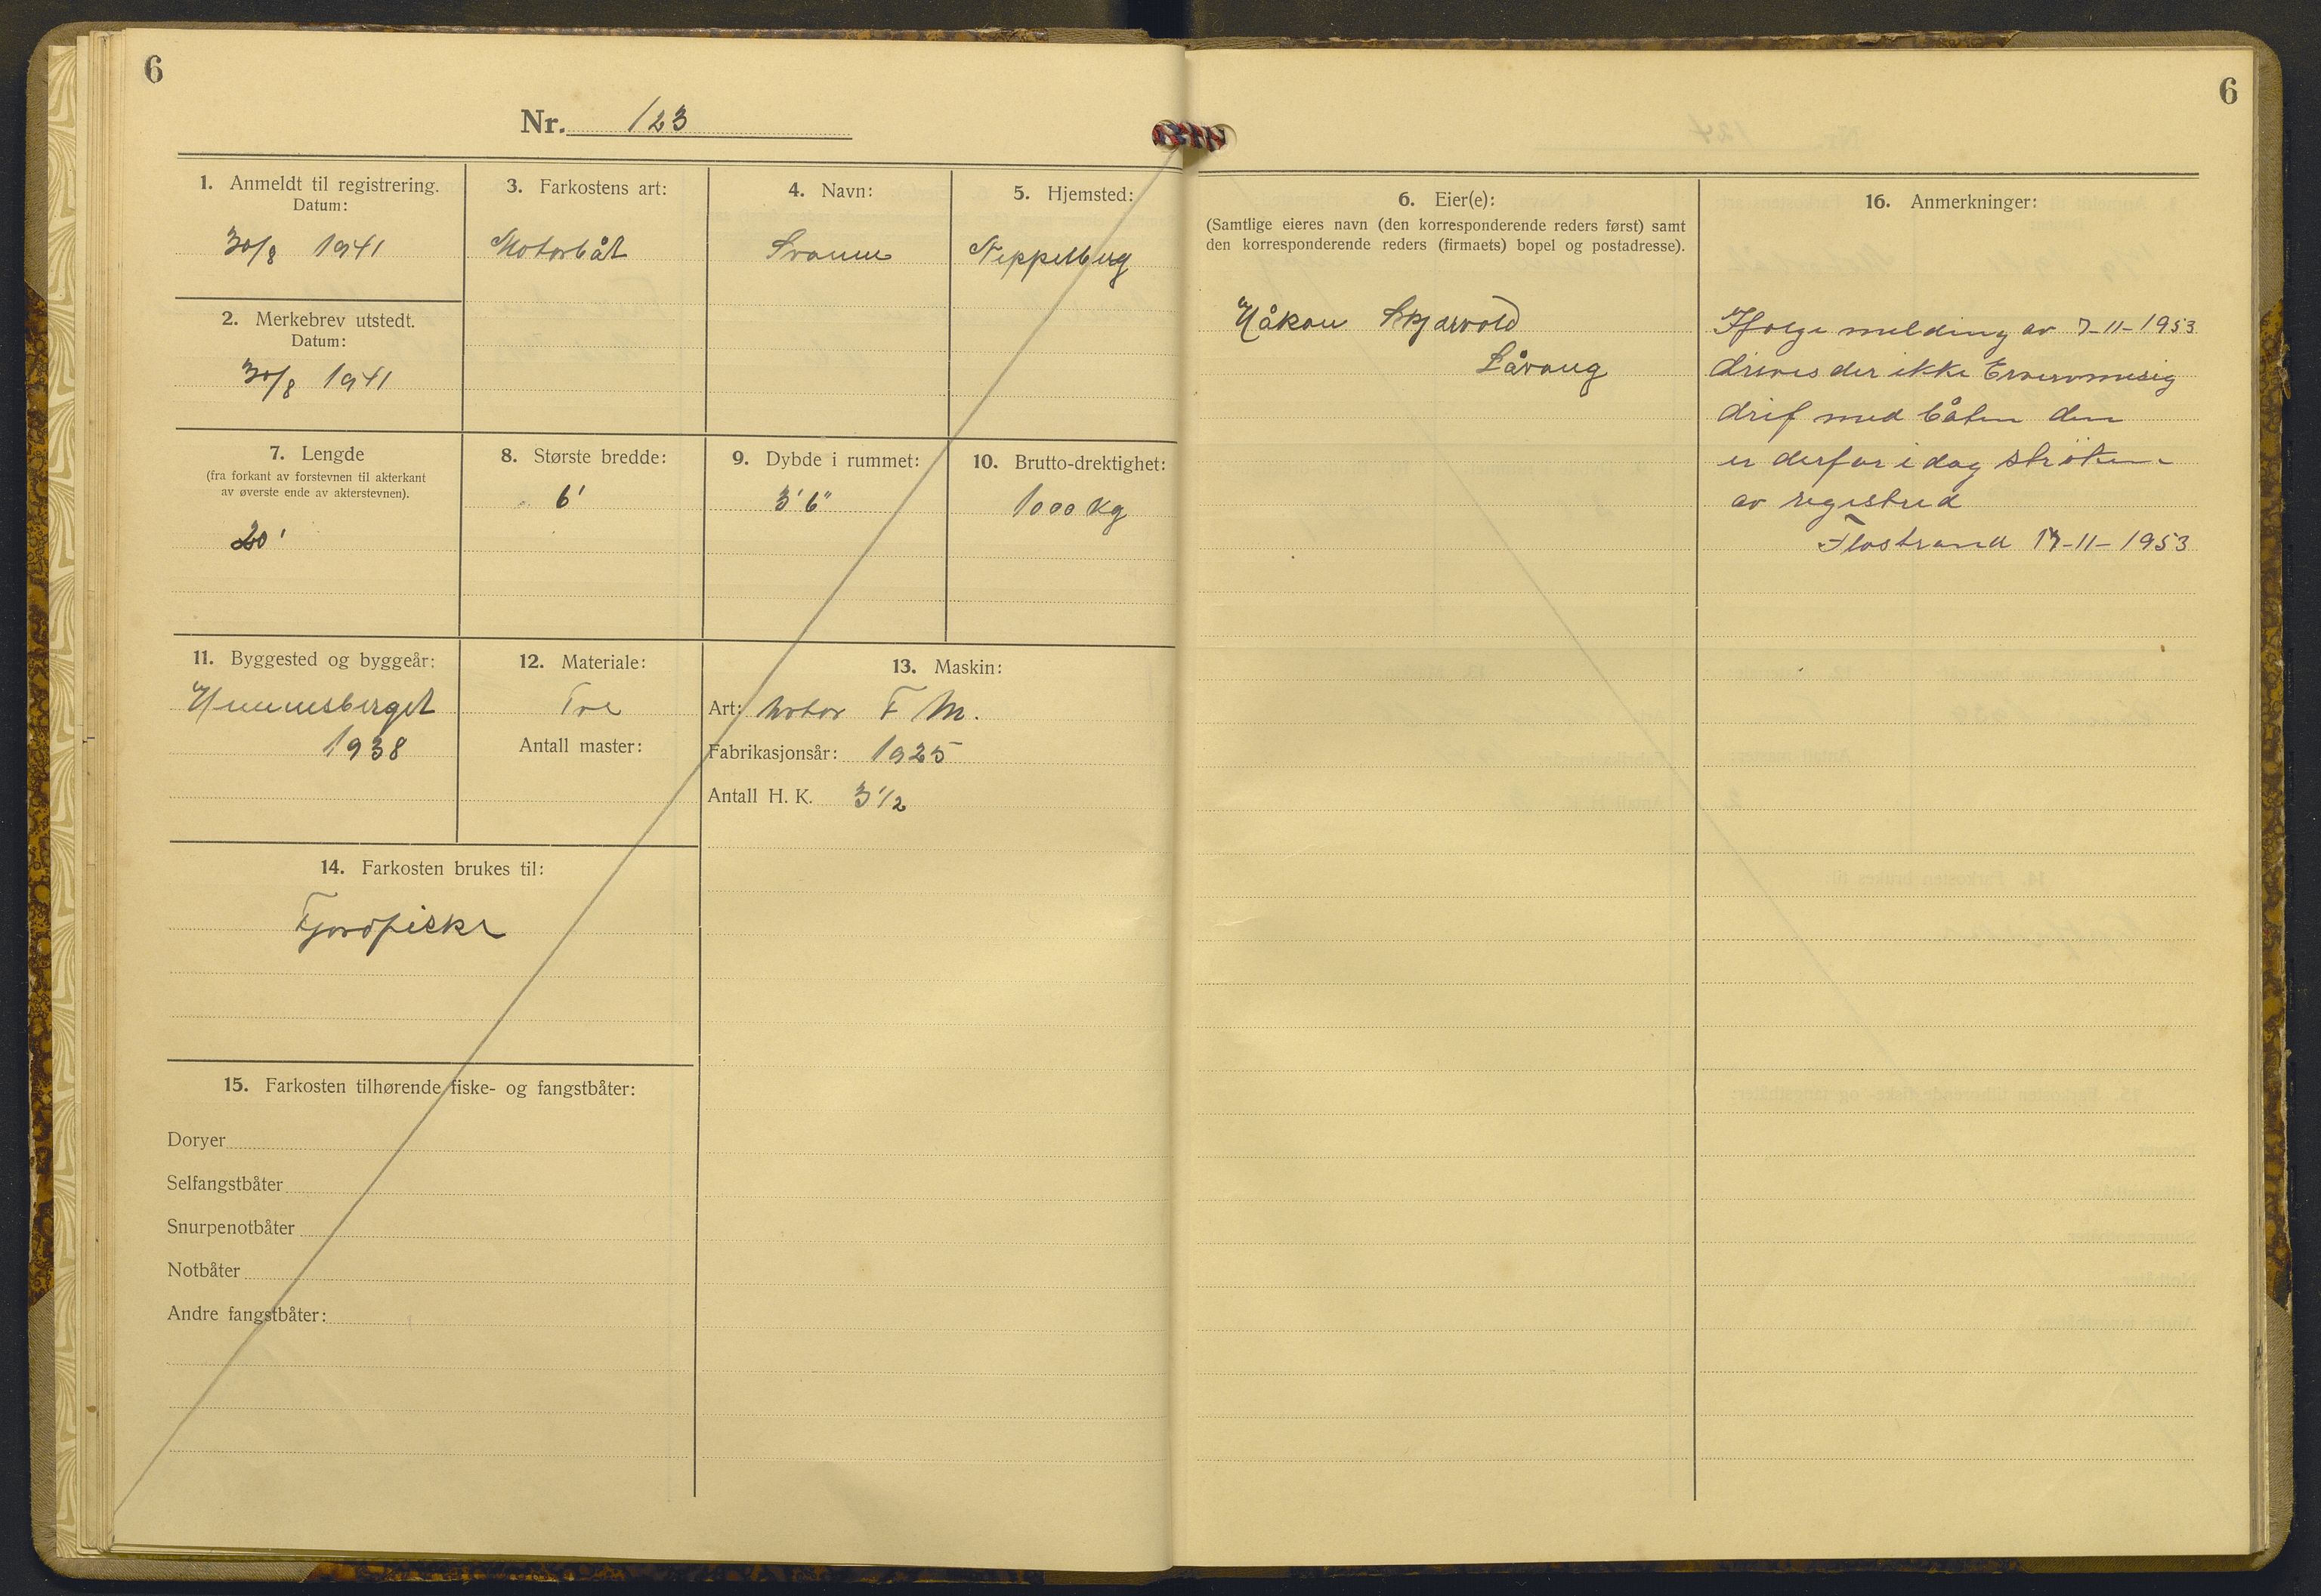 6
Nr. 123
1. Anmeldt til registrering.
Datum:
30/8 1941
2. Merkebrev utstedt.
Datum:
30/8 1941
3. Farkostens art:
Motorbåt
4. Navn:
Svanen
5. Hjemsted:
Neppelberg
7. Lengde
(fra forkant av forstevnen til akterkant
av øverste ende av akterstevnen).
20'
8. Største bredde:
6'
9. Dybde i rummet:
3'6"
10. Brutto-drektighet:
1000 kg
11. Byggested og byggeår:
Hemnesberget
1938
12. Materiale:
Tre
Antall master:
13. Maskin:
Art: Motor F M.
Fabrikasjonsår: 1925
Antall H. K. 3 1/2
14. Farkosten brukes til:
Fjordfiske
15. Farkosten tilhørende fiske- og fangstbåter:
Doryer
Selfangstbåter
Snurpenotbåter
Notbåter
Andre fangstbåter:
6
6. Eier(e):
(Samtlige eieres navn (den korresponderende reders først) samt
den korresponderende reders (firmaets) bopel og postadresse).
Håkon Skjærvold
Låvong
16. Anmerkninger:
Ifølge melding av 7-11-1953
drives der ikke Ervervmesig
drif med båten den
er derfor i dag strøken
av registred
Flostrand 17-11-1953